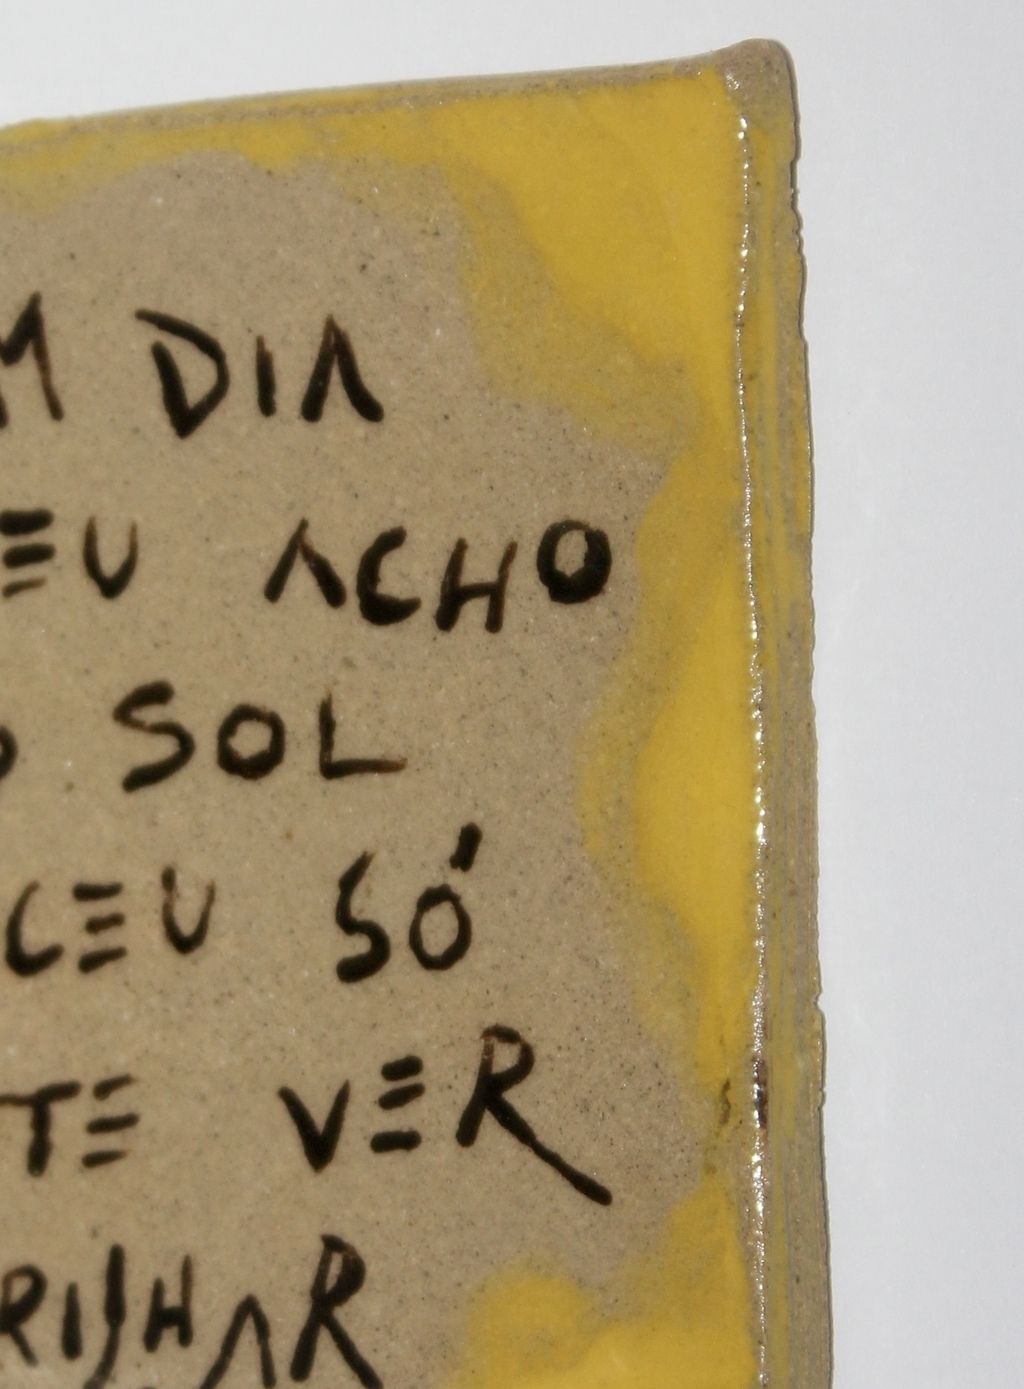 M DIA
EU ACHO
O SOL
CEU SÓ
TE VER
RIJHAR